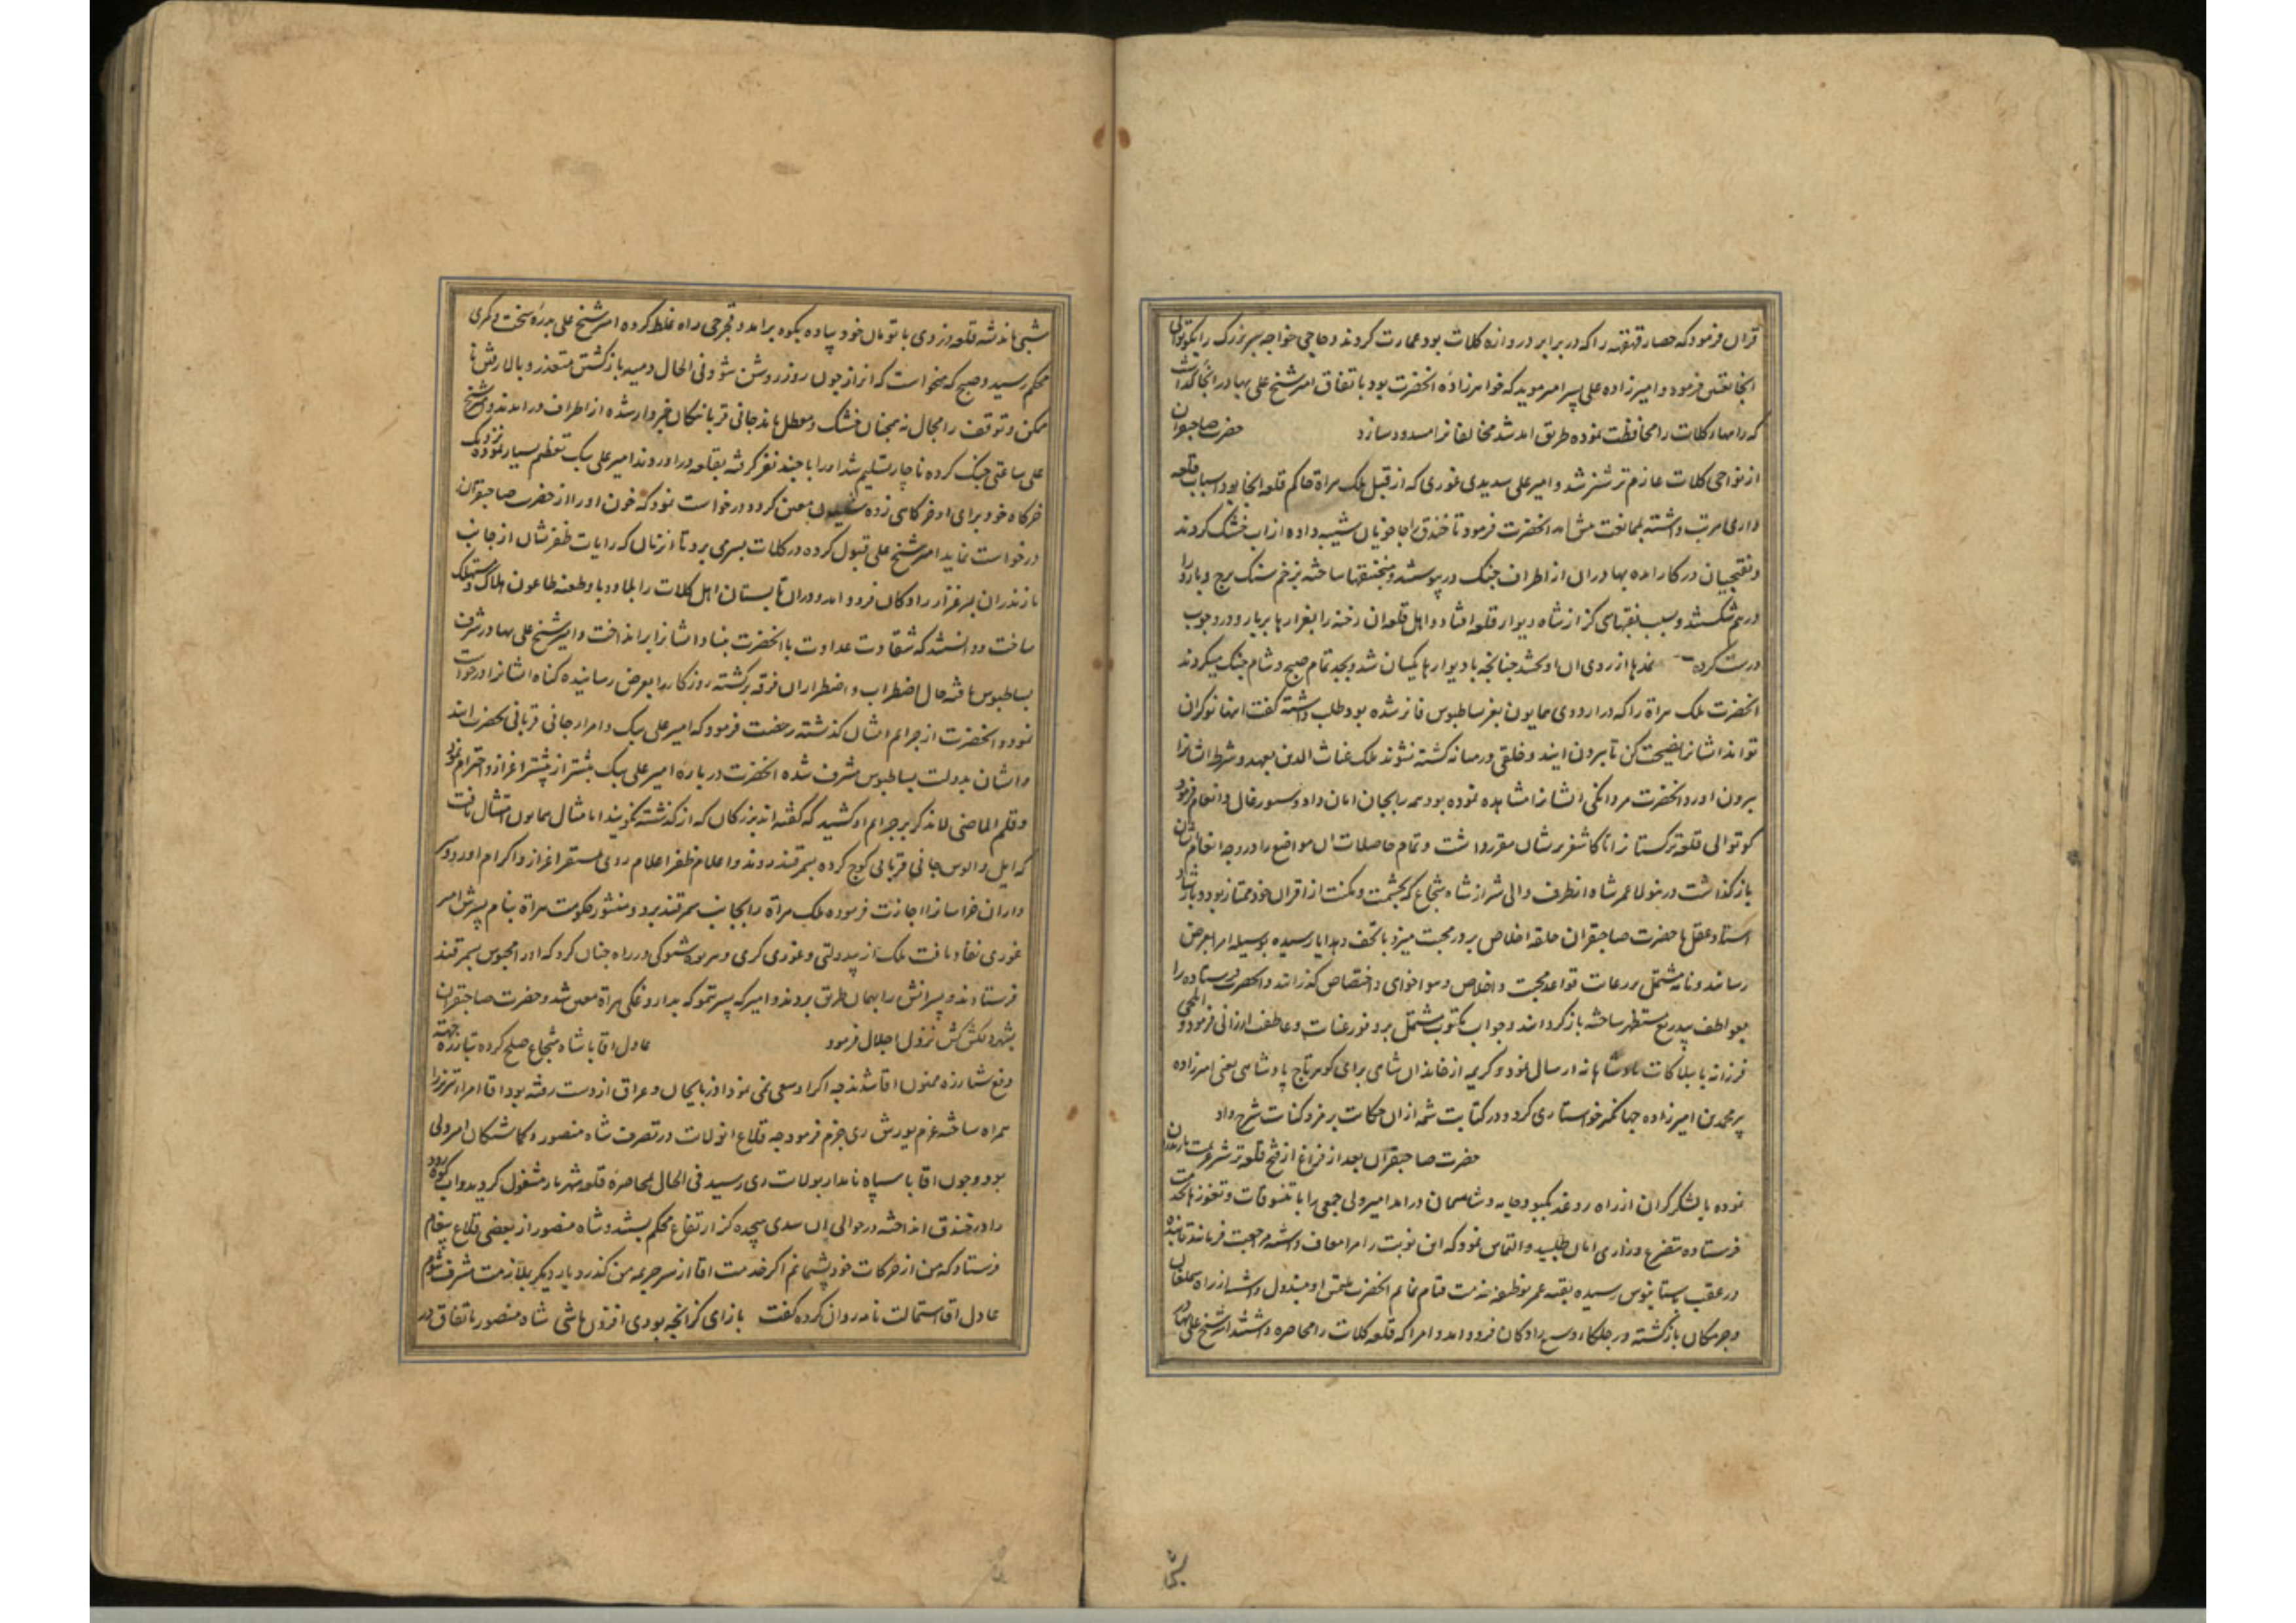 قران فرمود که حصار قهقهه را که در برابر دروازه کلات بود عمارت کردند و حاجی خواجه سر بزرک را بکوتوالی
انجا تعین فرمود و امیرزاده علی پسر امیر موید که خواهرزاده انحضرت بود باتفاق امیر شیخ علی بهادر انجا کذاشت
که راهها کلات را محافظت نموده طریق امد شد مخالفانرا مسدود سازد حضرت صاحبقران
از نواحی کلات عازم ترشیز شد و امیر علی سدیدی غوری که از قبل ملک هراة حاکم قلعه انجا بود اسباب قلعه
داری مرتب داشته بممانعت پیش امد انحضرت فرمود تا خندق را چاخویان شیبه داده از اب خشک کردند
و نقبچیان در کار امده بهادران از اطراف جنک در پیوستند و منجنیقها ساخته بزخم سنک برج و بارو را
درهم شکستند و بسبب نقبهای کز از شاه دیوار قلعه افتاد و اهل قلعه ان رخنه را بغرارها پربار و در و چوب
درست کرده نمدها از روی ان اویختند چنانچه با دیوارها یکسان شد و بجد تمام صبح و شام جنک میکردند
انحضرت ملک هراة را که در اردوی همایون بعز بساطبوس فائز شده بود طلب داشته کفت اینها نوکران
تو اند ایشانرا نصیحت کن تا بیرون ایند و خلقی در میانه کشته نشوند ملک غیاث الدین بعهد و شرط ایشانرا
بیرون اورد و انحضرت مردانکی ایشانرا مشاهده نموده بود همه را بجان امان داد و سیورغال و انعام فرمود
کوتوالی قلعه ترکستانرا تا کاشغر بریشان مقرر داشت و تمام حاصلات ان مواضع را در وجه انعام شان
باز کذاشت درینولا عمر شاه از طرف والی شیراز شاه شجاع که بحشمت و مکنت از اقران خود ممتاز بود و باتفاق
استاد عقل با حضرت صاحبقران حلقه اخلاص بر در محبت میزد با تحف و هدایا رسیده بوسیله امرا بعرض
رسانیده و نامه مشتمل بر رعایت قواعد محبت و اخلاص و هواخواهی و اختصاص کذرانید و انحضرت فرستاده را
بعواطف بیدریغ مستظهر ساخته باز کردانید و جواب مکتوب مشتمل بر وفور عنایت و عاطف ارزانی فرمود و ایلچی
فرزانه با بیلاکات پادشاهانه ارسال نمود و کریمه از خاندان شاهی برای کوهر تاج پادشاهی یعنی امیرزاده
پیر محمد بن امیرزاده جهانکیر خواستاری کرد و در کتابت شمه از ان حکایت برمز و کنایت شرح داد
حضرت صاحبقران بعد از فراغ از فتح قلعه ترشیز عزیمت مازندران
نموده با لشکر کران از راه روغد بکبود جامه و شاسمان درامد امیر ولی جمعی را با تنسوقات و تقوزها بخدمت
فرستاده متضرع و زاری امان طلبید و التماس نمود که این نوبت را مرا معاف داشته مراجعت فرمایند تا بنده
در عقب بستانبوس رسیده بقیه عمر بوظیفه خدمت قیام نمایم انحضرت ملتمس او مبذول داشته از راه سملقان
و جرمکان بازکشته در جلکاء وسیع رادکان فرود امد و امرا که قلعه کلات را محاصره داشتند امیر شیخ علی بهادر
شبی باندیشه قلعه دزدی با تومان خود پیاده بکوه برامد و قجرجی راه غلط کرده امیر شیخ علی بدره سخت و کمری
محکم رسید و صبح که میخواست که از راز چون روز روشن شود فی الحال دمید باز کشتن متعذر و بالا رفتن نا
ممکن و توقف را مجال نه همچنان خشک و معطل ماند جانی قربانیکان خبردار شده از اطراف درامدند و امیر شیخ
علی ساعتی جنک کرده ناچار تسلیم شد او را با چند نفر کرفته بقلعه دراوردند امیر علی بیک تعظیم بسیار نموده نزدیک
خرکاه خود برای او خرکاهی زده معین کرد و درخواست نمود که خون او را از حضرت صاحبقران
درخواست نماید امیر شیخ علی قبول کرده در کلات بسر می برد تا از زمان که رایات ظفر نشان از جانب
مازندران بمرغزار رادکان فرود امد و دران تابستان اهل کلات را بلا و وبا و طعنه طاعون هلاک و مستهلک
ساخت و دانستند که شقاوت عداوت با انحضرت بنیاد ایشانرا برانداخت و امیر شیخ علی بهادر شرف
بساطبوس یافته حال اضطراب و اضطرار ان فرقه برکشته روزکار را بعرض رسانیده کناه ایشانرا درخواست
نمود و انحضرت از جرایم ایشان کذشته رخصت فرمود که امیر علی بیک و امراء جانی قربانی بحضرت ایند
و ایشان بدولت بساطبوس مشرف شده انحضرت درباره امیر علی بیک بیشتر از پیشتر اعزاز و احترام نمود
و قلم الماضی لا یذکر بر جرایم او کشید که کفته اند بزرکان که از کذشته نکویند اما مثال همایون امتثال یافت
که ایل و الوس جانی قربانی کوچ کرده بسمرقند روند و اعلام ظفر اعلام روی بمستقر اعزاز و اکرام اورد و سر
داران خراسانرا اجازت فرموده ملک هراة را بجانب سمرقند برد و منشور حکومت هراة بنام پسرش امیر
غوری نفاذ یافت ملک از بیدولتی و غوری کری و بیهوده شوکی در راه چنان کرد که او را محبوس بسمرقند
فرستادند و پسرانش را بهمان طریق بردند و امیرکه پسر تموکه بداروغکی هراة معین شد و حضرت صاحبقران
بشهر دلکش کش نزول اجلال فرمود عادل اقا با شاه شجاع صلح کرده تبارزه جهته
دفع شنارزه ممنون اقا شدند چه اکر او سعی نمی نمود اذربایجان و عراق از دست رفته بود اقا امراء تبریز را
همراه ساخته عزم یورش ری جزم فرمود چه قلاع انولایت در تصرف شاه منصور و کماشتکان امیر ولی
بود و چون اقا با سپاه نامدار بولایت ری رسید فی الحال بمحاصره قلعه شهریار مشغول کردید و اب کوه رود
را در خندق انداخته در حوالی ان سدی هیجده کز ارتفاع محکم بستند و شاه منصور از بعضی قلاع پیغام
فرستاد که من از حرکات خود پشیمانم اکر خدمت اقا از سر جریمه من کذرد بار دیکر بملازمت مشرف شوم
عادل اقا استمالت نامه روان کرده کفت بازای کز انچه بودی افزون باشی شاه منصور باتفاق در